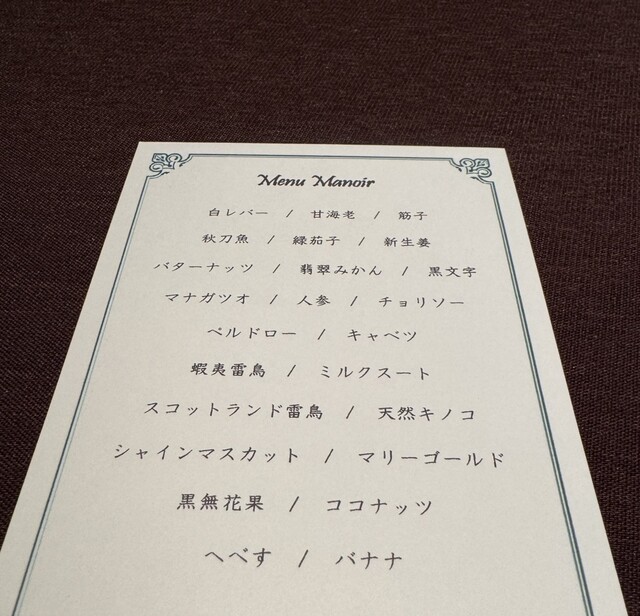 Menu Manoir
白レバー / 甘海老 / 筋子
秋刀魚 / 緑茄子 / 新生姜
バターナッツ / 翡翠みかん / 黒文字
マナガツオ / 人参 / チョリソー
ペルドロー / キャベツ
蝦夷雷鳥 / ミルクスート
スコットランド雷鳥 / 天然キノコ
シャインマスカット / マリーゴールド
黒無花果 / ココナッツ
へべす / バナナ